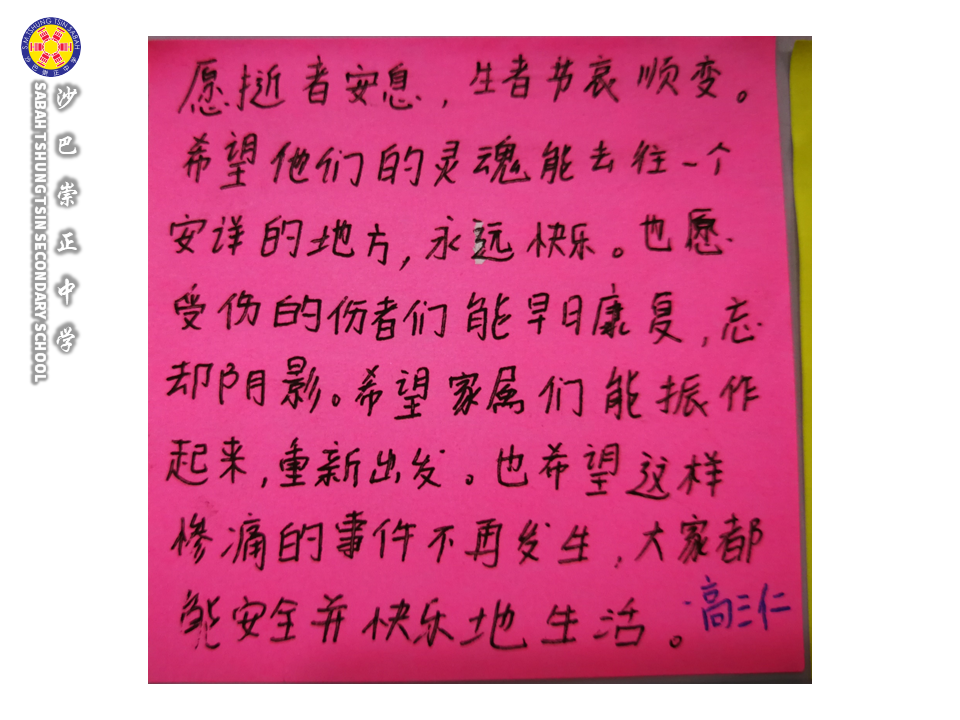 S.M. TSHUNG TSIN SABAH
沙巴崇正中学
沙巴崇正中学
SABAH TSHUNG TSIN SECONDARY SCHOOL
愿挺者安息，生者节哀顺变。
希望他们的灵魂能去往一个
安详的地方，永远快乐。也愿
受伤的伤者们能早日康复，忘
却阴影。希望家属们能振作
起来，重新出发。也希望这样
惨痛的事件不再发生，大家都
能安全并快乐地生活。
高三仁